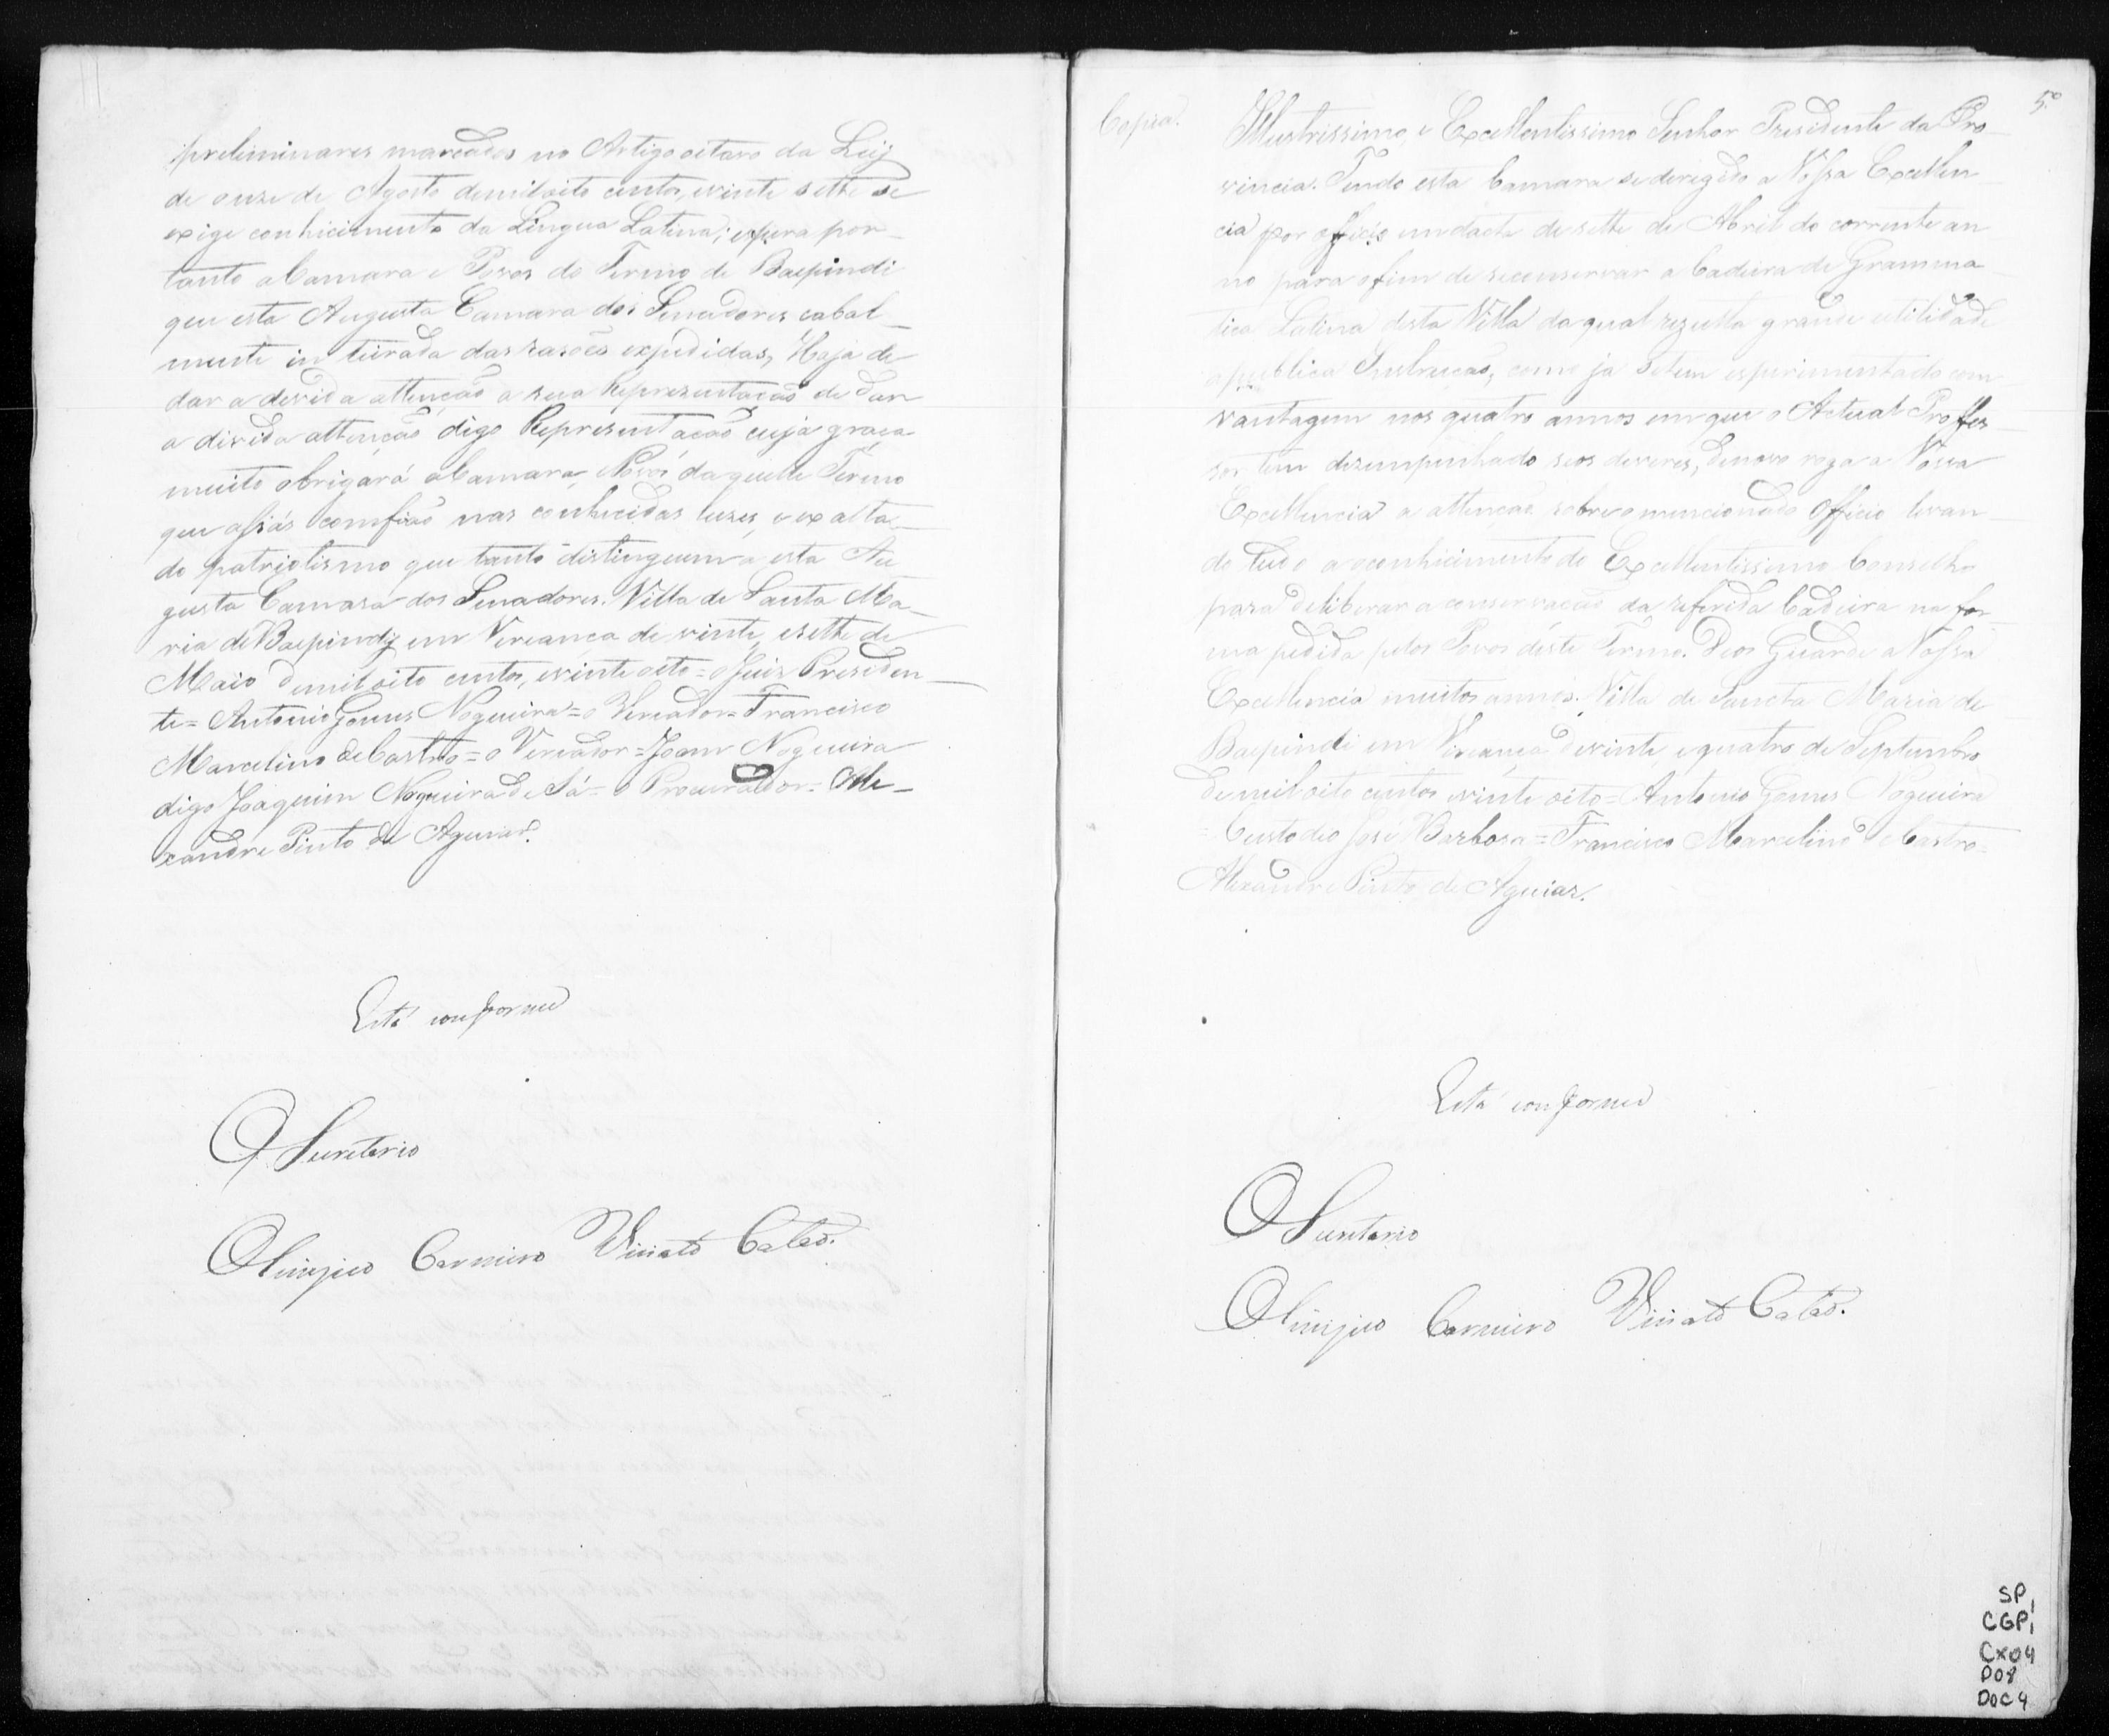 preliminares marcados no Artigo oitavo da Leij
de onze de Agosto demiloito centos, evinte sette se
exige conhicimento da Lingua Latina; espera por-
tanto a Camara e Povos do Termo de Baependi
que esta Augusta Camara dos Senadores cabal-
mente in teirada das rasões expedidas, Haja de
dar a devida attenção a sua Reprezentação de dar
a divida attenção digo Representação cuja graça
muito obrigará a Camara, e Povos daquelle Termo
que assás comfião nas conhecidas luzes, e exalta-
do patriotismo que tanto distinguem a esta Au-
gusta Camara dos Senadores. Villa de Santa Ma-
ria de Baependij em Vereança de vinte, esette de
Maio demiloito centos, evinte oito = o Juiz Presiden-
te = Antonio Gomes Nogueira = o Vereador = Francisco
Marcelino de Castro = o Vereador = Joam Nogueira
digo Joaquim Nogueira de Sá = o Procurador = Ale-
xandre Pinto de Aguiar.
Está conforme
O Secretario
Olimpico Carneiro Viriato Catão.
5º
Copia.
Illustrissimo, e Excellentissimo Senhor Presidente da Pro-
vincia. Tendo esta Camara se derigido a Vossa Excellen-
cia por officio em dacta de sette de Abril do corrente an-
no para o fim de seconservar a Cadeira de Gramma-
tica Latina desta Villa da qual rezulta grande utilidade
a publica Instrucção, como ja setem experimentado com
vantagem nos quatro annos em que o Actual Profes-
sor tem dezempenhado seos deveres, denovo roga a Vossa
Excellencia a attenção sobre o mencionado Officio levan-
do tudo a oconhicimento do Excellentissimo Conselho
para deliberar a conservação da referida Cadeira na for-
ma pedida pelos Povos déste Termo. Deos Guarde a Vossa
Excellencia muitos annos. Villa de Sancta Maria de
Baependi em Vereança de vinte, e quatro de Septembro
de mil oito centos evinte oito = Antonio Gomes Nogueira
= Custodio José Barbosa = Francisco Marcelino de Castro =
Alexandre Pinto de Aguiar.
Está conforme
O Secretario
Olimpico Carneiro Viriato Catão.
SP,
CGP,
Cx04
D08
DOC 4